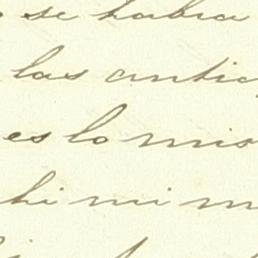 se habia
las antic
es lo mis
hi mi m